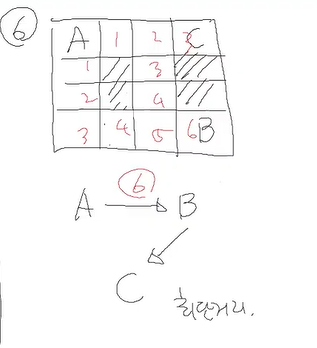 6
A 1 2 3 C
1 3
2 4
3 4 5 6 B
6
A B
C
최단거리.